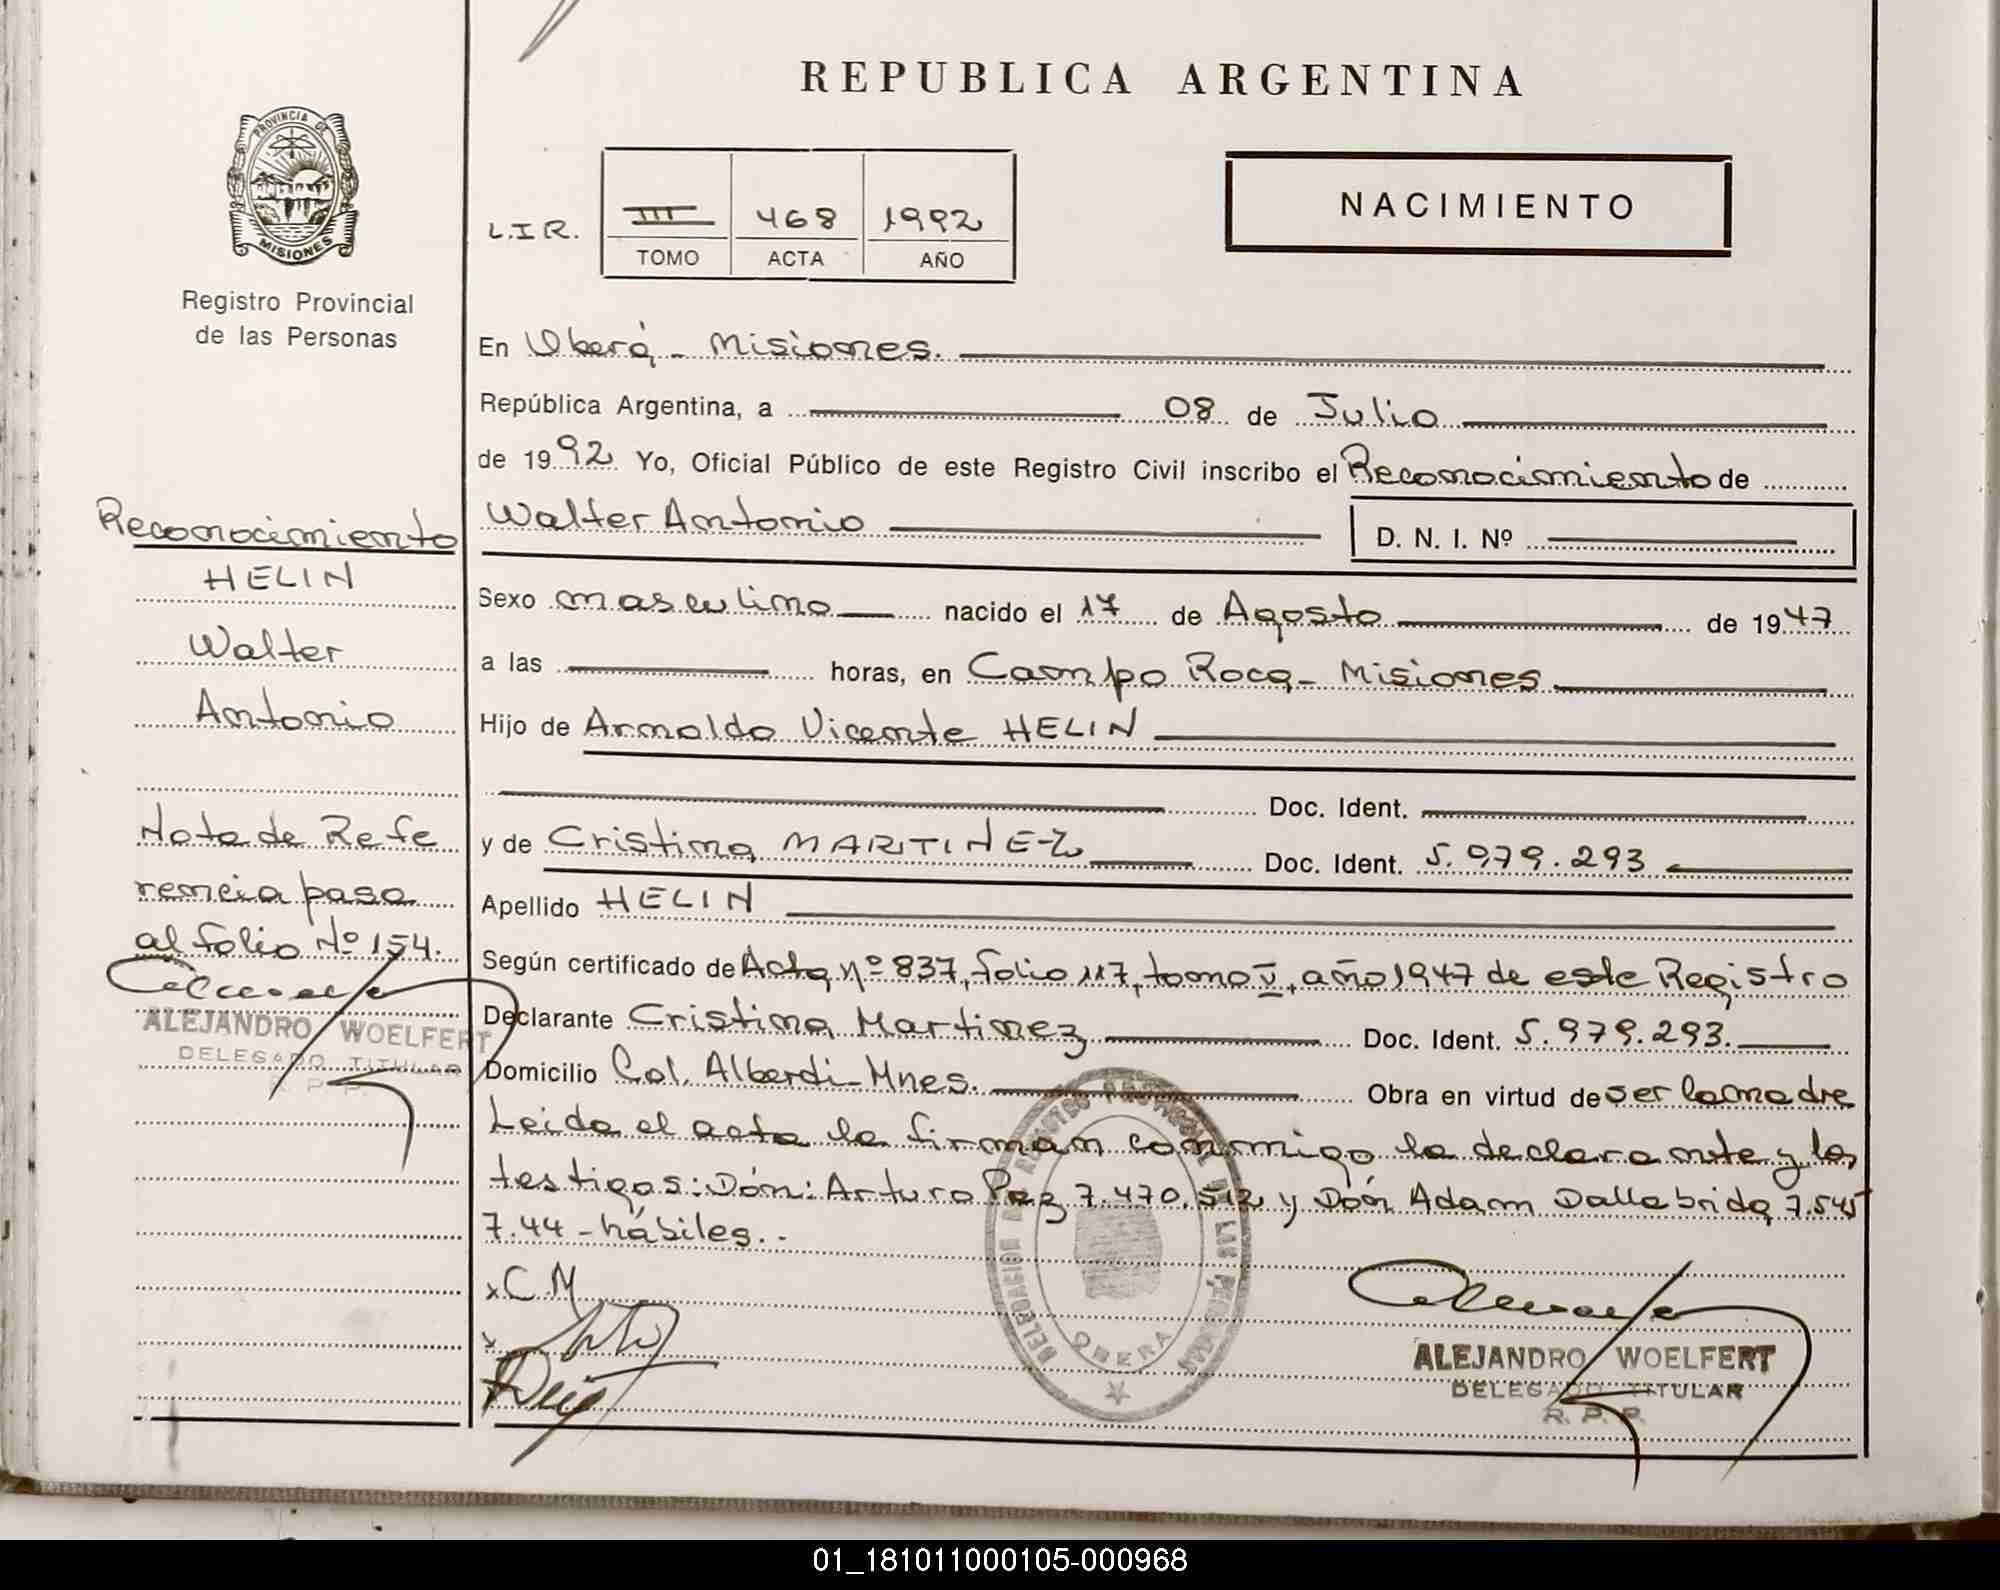 REPUBLICA ARGENTINA
PROVINCIA DE
MISIONES
Registro Provincial
de las Personas
L.I.R.
III 468 1992
TOMO ACTA AÑO
NACIMIENTO
En Oberá - Misiones.
República Argentina, a 08 de Julio
de 1992 Yo, Oficial Público de este Registro Civil inscribo el Reconocimiento de
Walter Antonio D. N. I. Nº
Sexo masculino nacido el 17 de Agosto de 1947
a las horas, en Campo Roca - Misiones
Hijo de Arnoldo Vicente HELIN
Doc. Ident.
y de Cristina MARTINEZ Doc. Ident. 5.979.293
Apellido HELIN
Según certificado de Acta nº 837, folio 117, tomo V, año 1947 de este Registro
Declarante Cristina Martinez Doc. Ident. 5.979.293.
Domicilio Col. Alberdi - Mnes. Obra en virtud de ser la madre
Leida el acta la firman conmigo la declarante y los
testigos: Dón: Arturo Paz 7.470.512 y Dón Adam Dallabrida 7.545
7.44 - hábiles. -
x C M
x
Reconocimiento
HELIN
Walter
Antonio
Nota de Refe
rencia pasa
al folio Nº 154.
ALEJANDRO WOELFERT
DELEGADO TITULAR
R. P. P.
DELEGACION DEL REGISTRO PROVINCIAL DE LAS PERSONAS
OBERA
ALEJANDRO WOELFERT
DELEGADO TITULAR
R. P. P.
01_181011000105-000968